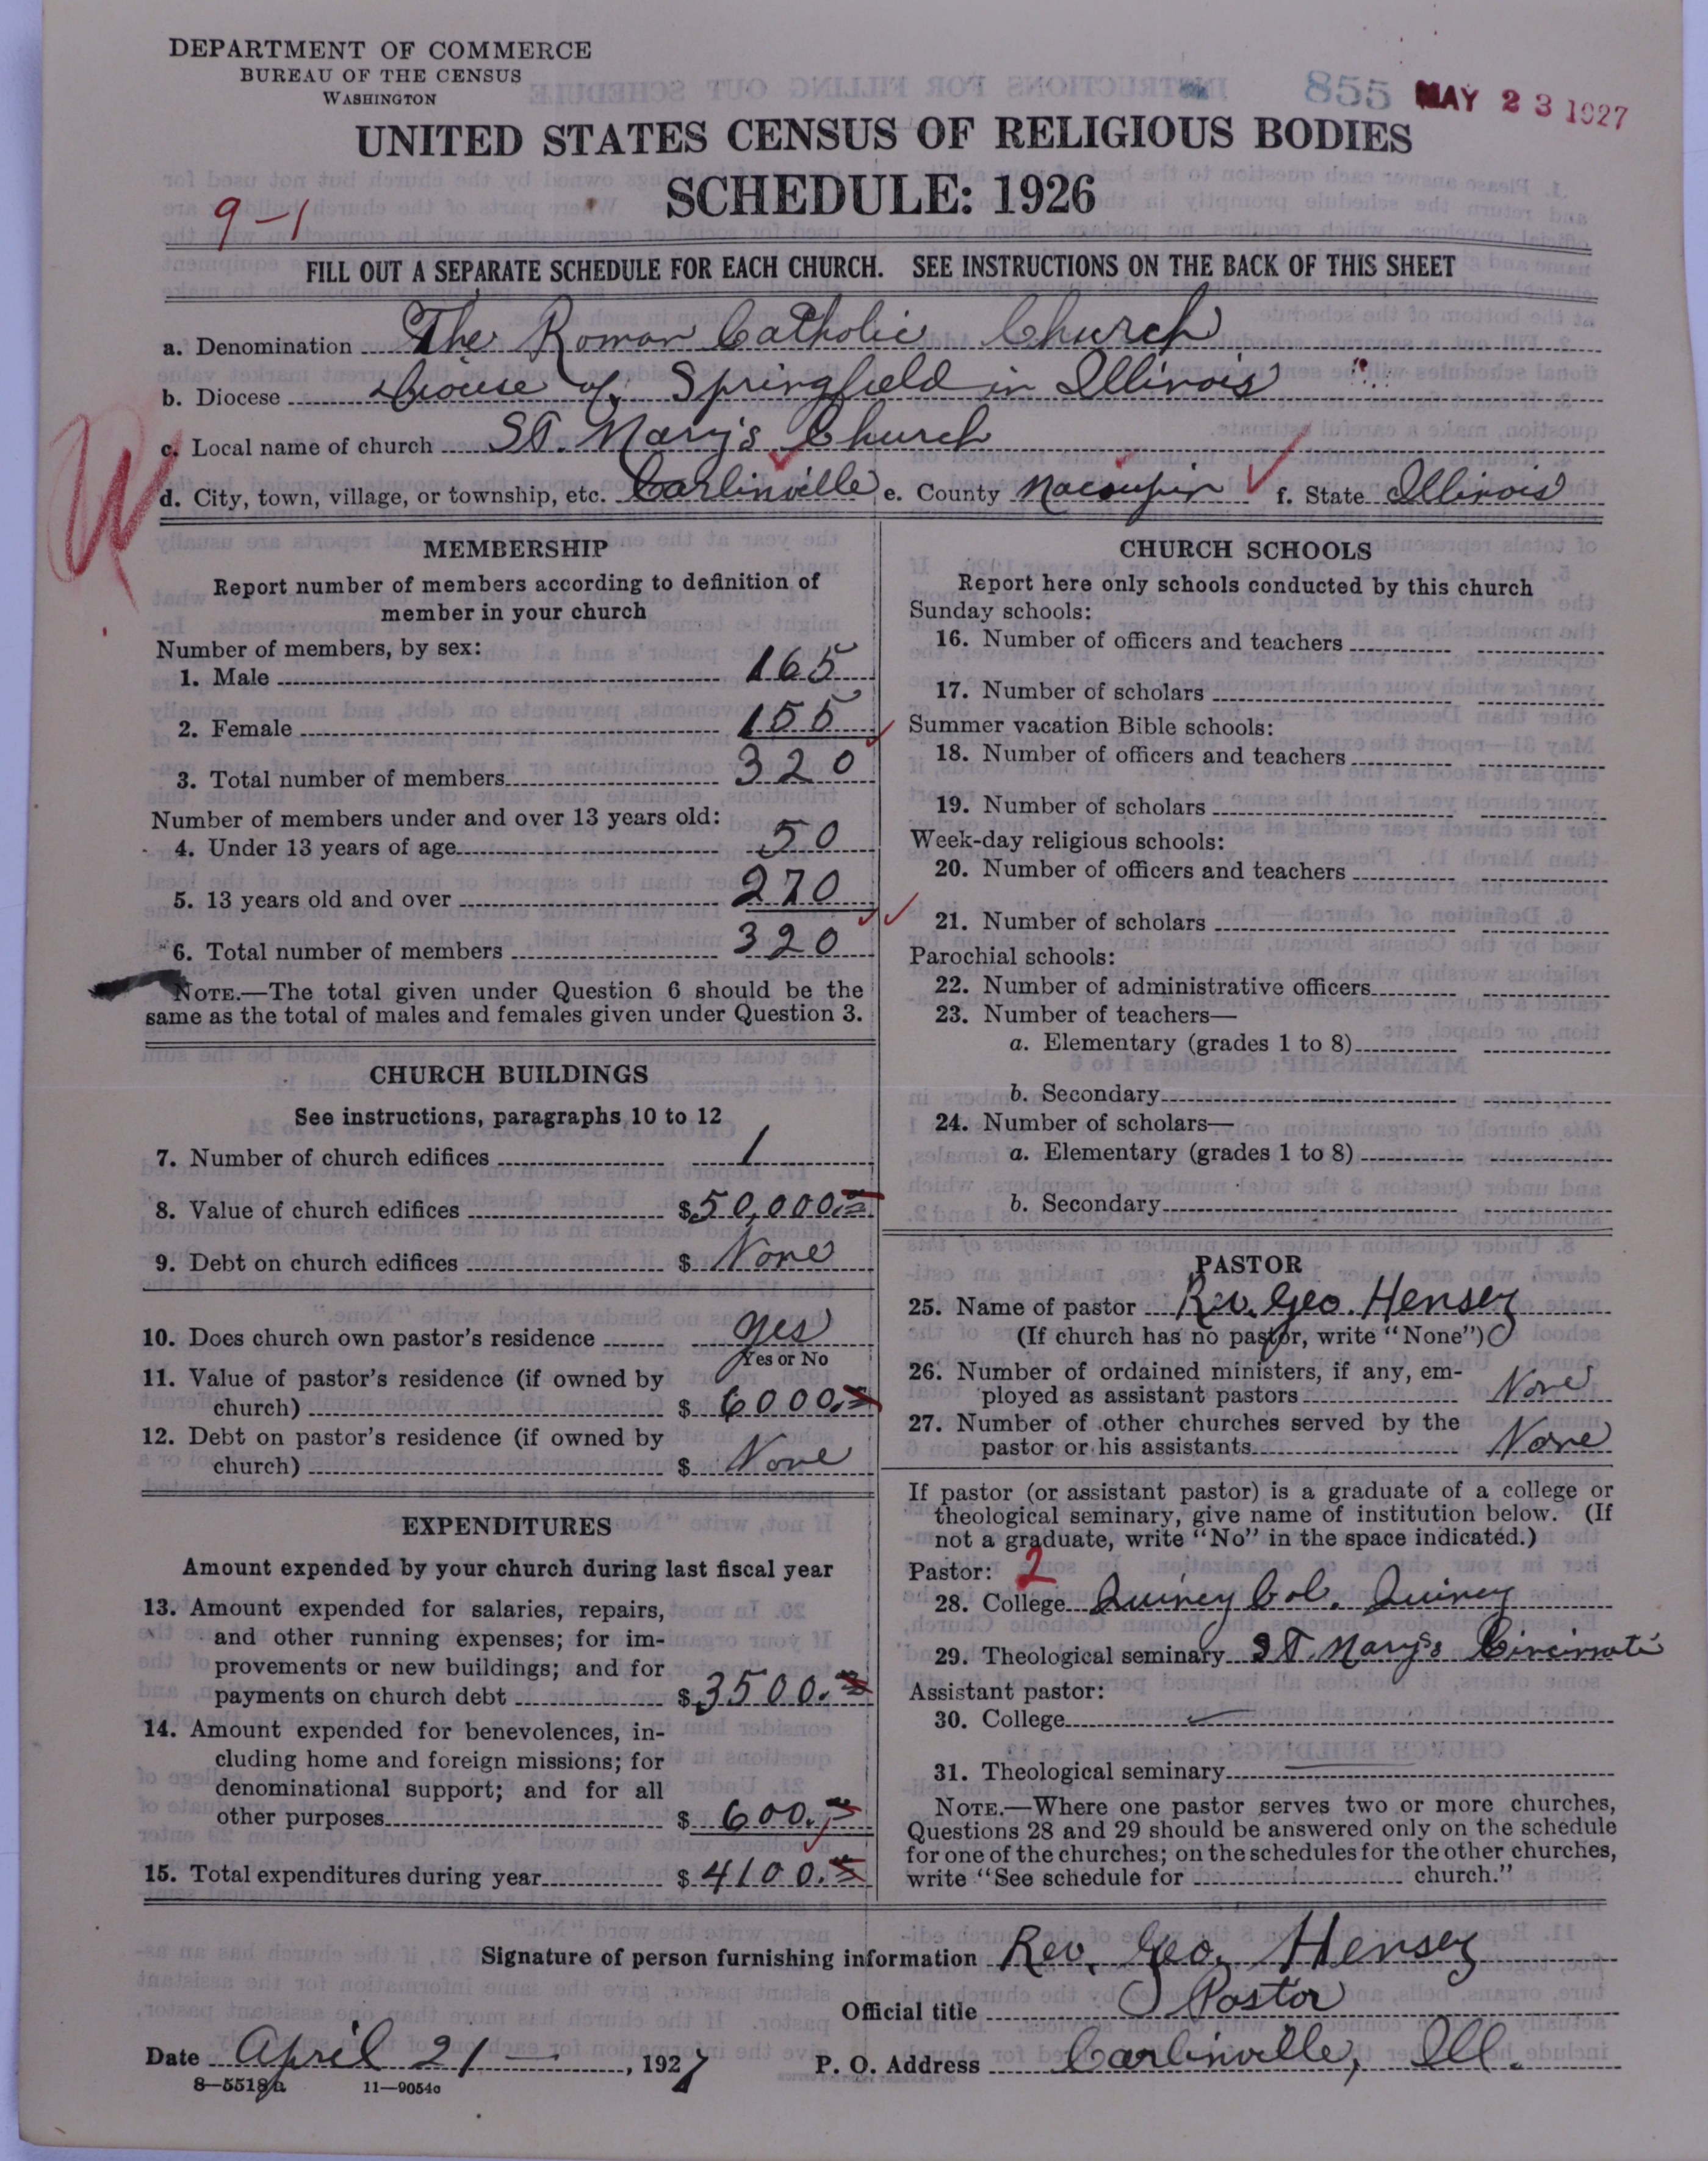 DEPARTMENT OF COMMERCE
BUREAU OF THE CENSUS
WASHINGTON
855 MAY 23 1927
UNITED STATES CENSUS OF RELIGIOUS BODIES
SCHEDULE: 1926
9-1
FILL OUT A SEPARATE SCHEDULE FOR EACH CHURCH. SEE INSTRUCTIONS ON THE BACK OF THIS SHEET
a. Denomination The Roman Catholic Church
b. Diocese Diocese of Springfield in Illinois
c. Local name of church ST. Mary's Church
d. City, town, village, or township, etc. Carlinville e. County Macoupin f. State Illinois
MEMBERSHIP
Report number of members according to definition of
member in your church
Number of members, by sex:
1. Male 165
2. Female 155
3. Total number of members 320
Number of members under and over 13 years old:
4. Under 13 years of age 50
5. 13 years old and over 270
6. Total number of members 320
NOTE.—The total given under Question 6 should be the
same as the total of males and females given under Question 3.
CHURCH BUILDINGS
See instructions, paragraphs 10 to 12
7. Number of church edifices 1
8. Value of church edifices $50,000.
9. Debt on church edifices $ None
10. Does church own pastor's residence yes
Yes or No
11. Value of pastor's residence (if owned by
church) $ 6000.
12. Debt on pastor's residence (if owned by
church) $ None
EXPENDITURES
Amount expended by your church during last fiscal year
13. Amount expended for salaries, repairs,
and other running expenses; for im-
provements or new buildings; and for
payments on church debt $3500.
14. Amount expended for benevolences, in-
cluding home and foreign missions; for
denominational support; and for all
other purposes $ 600.
15. Total expenditures during year $4100.
CHURCH SCHOOLS
Report here only schools conducted by this church
Sunday schools:
16. Number of officers and teachers
17. Number of scholars
Summer vacation Bible schools:
18. Number of officers and teachers
19. Number of scholars
Week-day religious schools:
20. Number of officers and teachers
21. Number of scholars
Parochial schools:
22. Number of administrative officers
23. Number of teachers—
a. Elementary (grades 1 to 8)
b. Secondary
24. Number of scholars—
a. Elementary (grades 1 to 8)
b. Secondary
PASTOR
25. Name of pastor Rev. Geo. Hensey
(If church has no pastor, write "None")
26. Number of ordained ministers, if any, em-
ployed as assistant pastors None
27. Number of other churches served by the
pastor or his assistants None
If pastor (or assistant pastor) is a graduate of a college or
theological seminary, give name of institution below. (If
not a graduate, write "No" in the space indicated.)
Pastor: 2
28. College Quincy Col. Quincy
29. Theological seminary ST. Mary's Cincinnati
Assistant pastor:
30. College
31. Theological seminary
NOTE.—Where one pastor serves two or more churches,
Questions 28 and 29 should be answered only on the schedule
for one of the churches; on the schedules for the other churches,
write "See schedule for church."
Signature of person furnishing information Rev. Geo. Hensey
Official title Pastor
Date April 21 —, 1927 P. O. Address Carlinville, Ill.
8—5518a 11—9054a